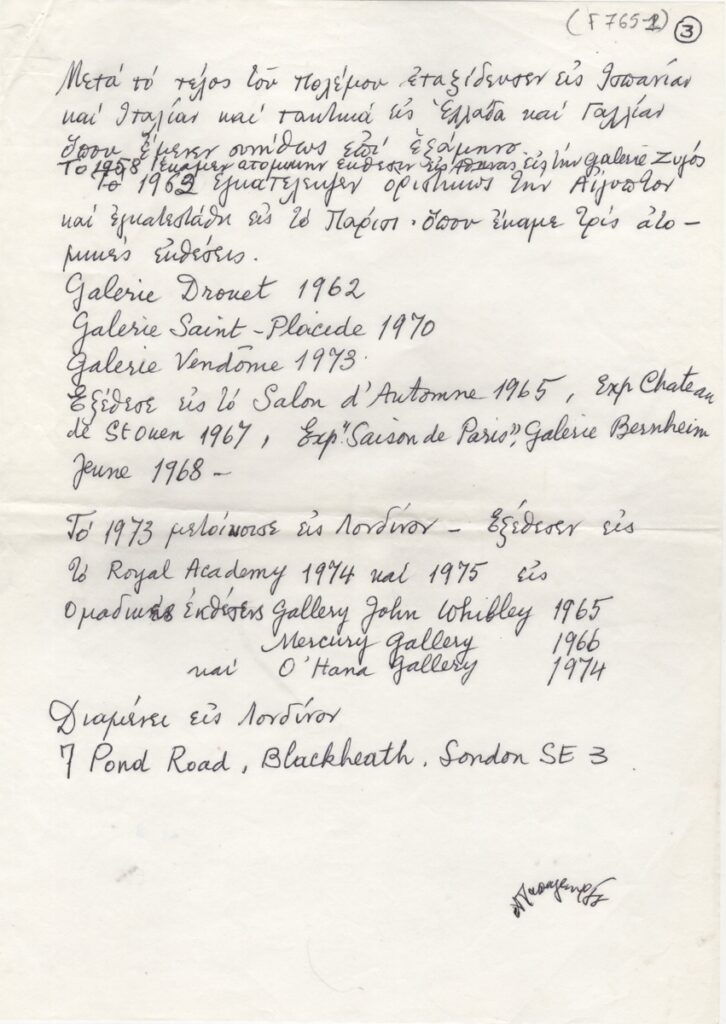 (F 765-2) 3
Μετά τό τέλος τοῦ πολέμου ἐταξίδευσεν εἰς Ἱσπανίαν
καί Ἰταλίαν καί τακτικά εἰς Ἑλλάδα καί Γαλλίαν
ὅπου ἔμενεν συνήθως ἐπί ἑξάμηνο
Τό 1958 ἔκαμεν ατομικην εκθεσιν εἰς Αθηνας εἰς τήν Galerie Ζυγός
Τό 1962 ἐγκατέλειψεν οριστικως την Αἴγυπτον
καί ἐγκατεστάθη εἰς τό Παρίσι. ὅπου ἔκαμε τρίς ἀτο-
μικές ἐκθέσεις.
Galerie Drouet 1962
Galerie Saint-Placede 1970
Galerie Vendôme 1973
Εξέθεσε εἰς τό Salon d'Automne 1965, Exp Chateau
de St Ouen 1967, Exp "Saison de Paris", Galerie Bernheim
Jeune 1968 -
Τό 1973 μετοίκισε εἰς Λονδῖνον - Εξέθεσεν εἰς
τό Royal Academy 1974 καί 1975 εἰς
ομαδικές ἐκθέσεις Gallery John Whibley 1965
Mercury Gallery 1966
καί O'Hana Gallery 1974
Διαμένει εἰς Λονδῖνον
7 Pond Road, Blackheath. London SE 3